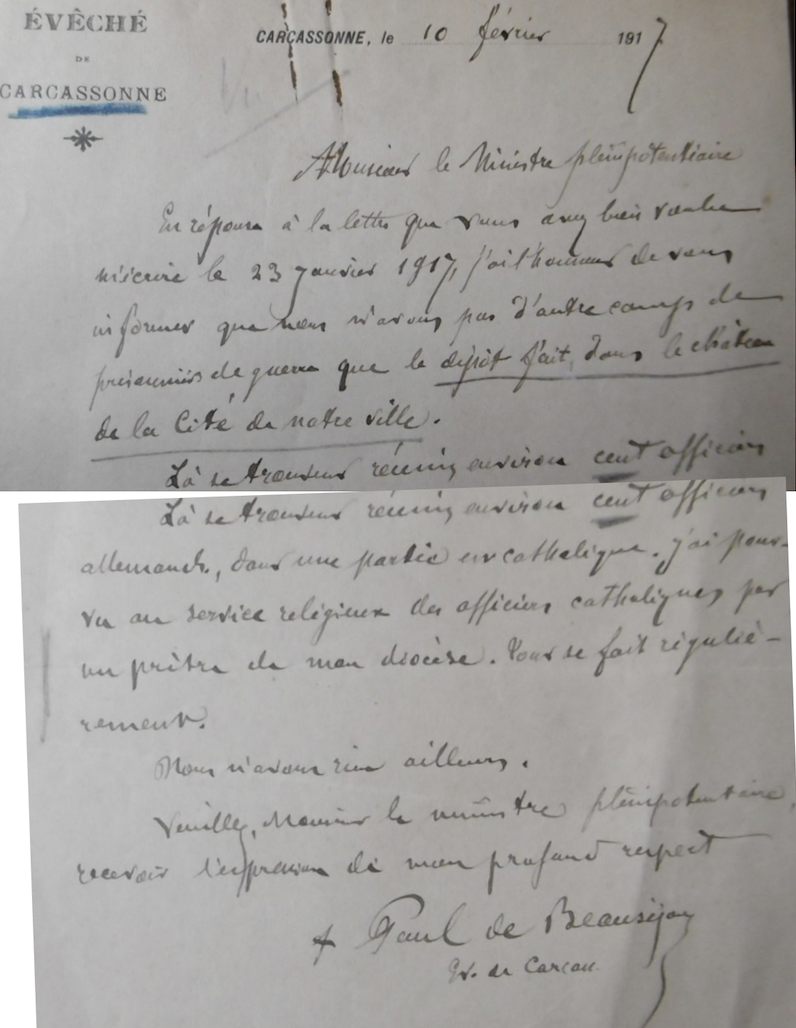 ÉVÊCHÉ
DE
CARCASSONNE
CARCASSONNE, le 10 février 1917
Monsieur le Ministre plénipotentiaire
En réponse à la lettre que vous avez bien voulu
m'écrire le 23 janvier 1917, j'ai l'honneur de vous
informer que nous n'avons pas d'autre camp de
prisonniers de guerre que le dépôt fait, dans le château
de la Cité de notre ville.
Là se trouvent réunis environ cent officiers
Là se trouvent réunis environ cent officiers
allemands, dont une partie est catholique. j'ai pour-
vu au service religieux des officiers catholiques par
un prêtre de mon diocèse. Tout se fait réguliè-
rement.
Nous n'avons rien ailleurs.
Veuillez, Monsieur le ministre plénipotentiaire,
recevoir l'expression de mon profond respect
+ Paul de Beauséjour
Ev. de Carcass.